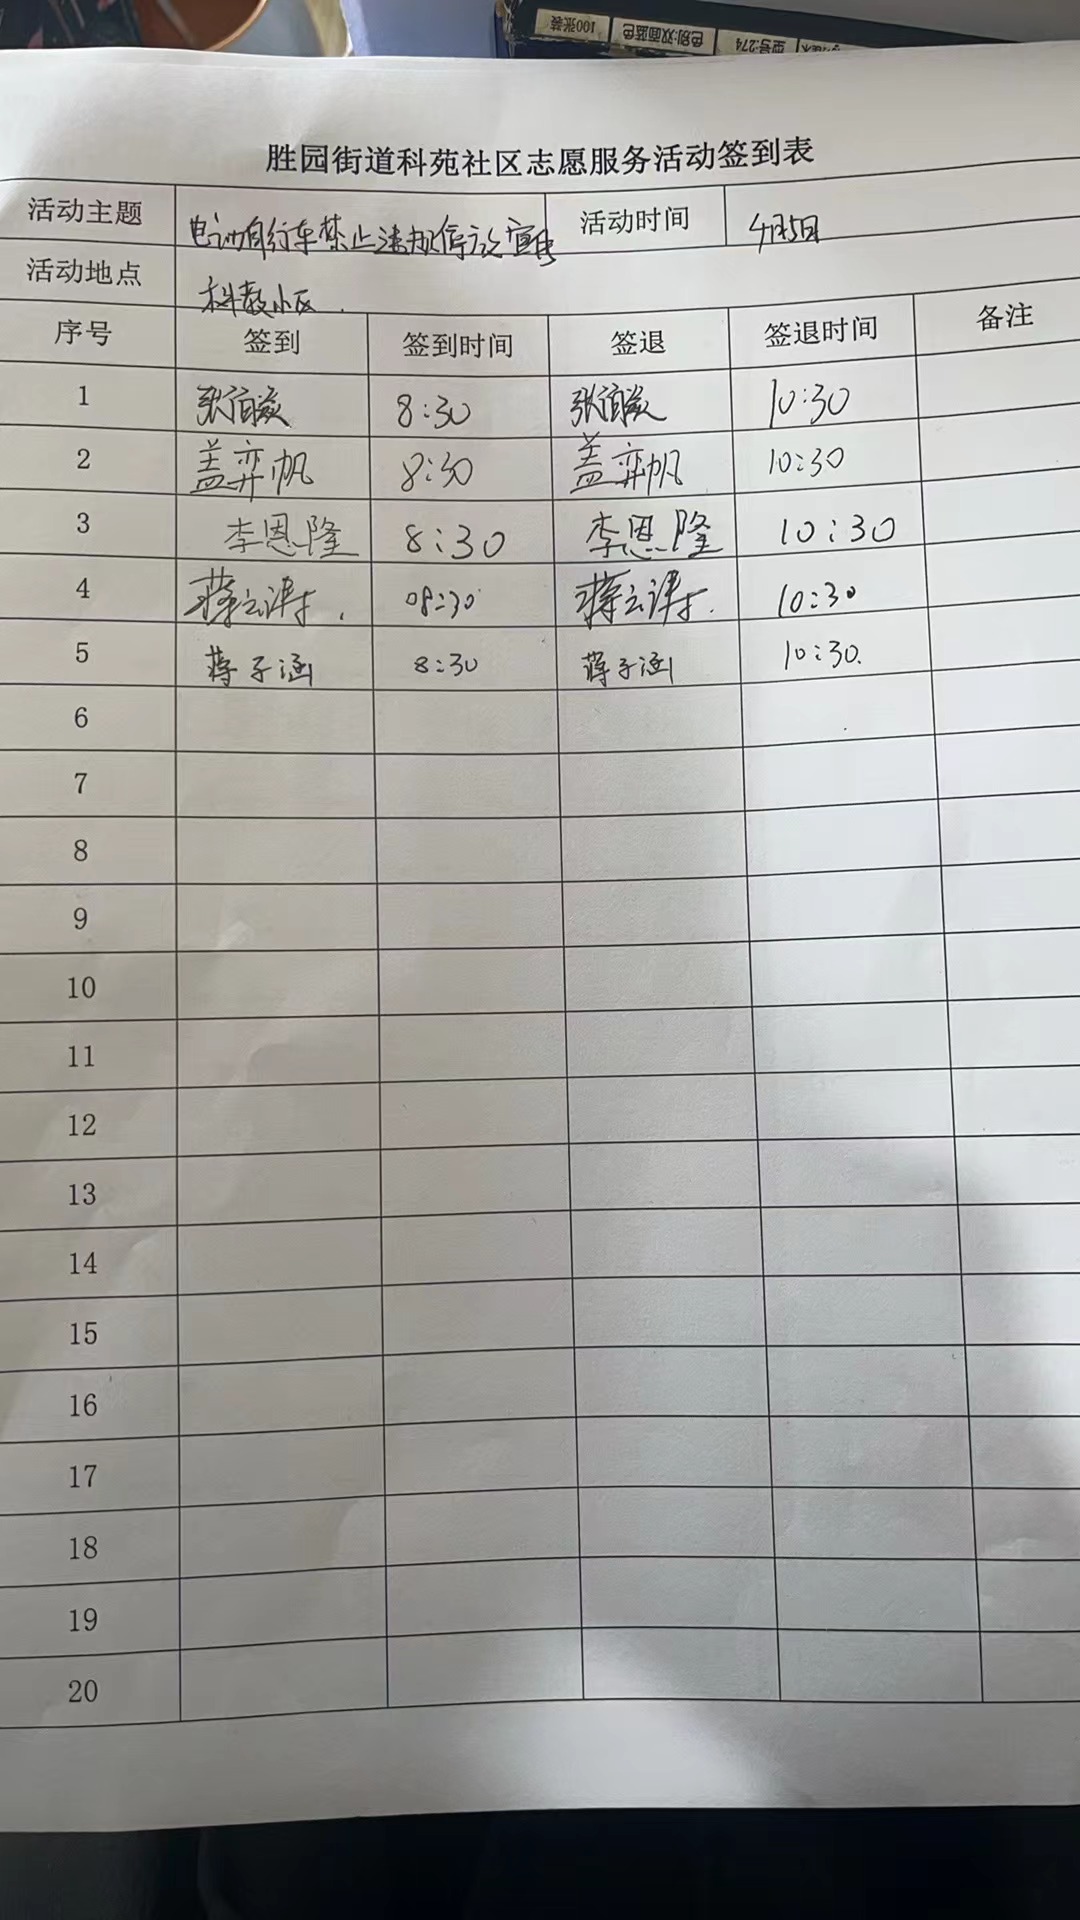 100张装
色别:双面蓝色
型号:274
胜园街道科苑社区志愿服务活动签到表
活动主题 电动自行车禁止违规停放宣传 活动时间 4月5日
活动地点 科教小区.
序号 签到 签到时间 签退 签退时间 备注
1 8:30 10:30
2 盖弈帆 8:30 盖弈帆 10:30
3 李恩隆 8:30 李恩隆 10:30
4 08:30 10:30
5 蒋子涵 8:30 蒋子涵 10:30.
6
7
8
9
10
11
12
13
14
15
16
17
18
19
20